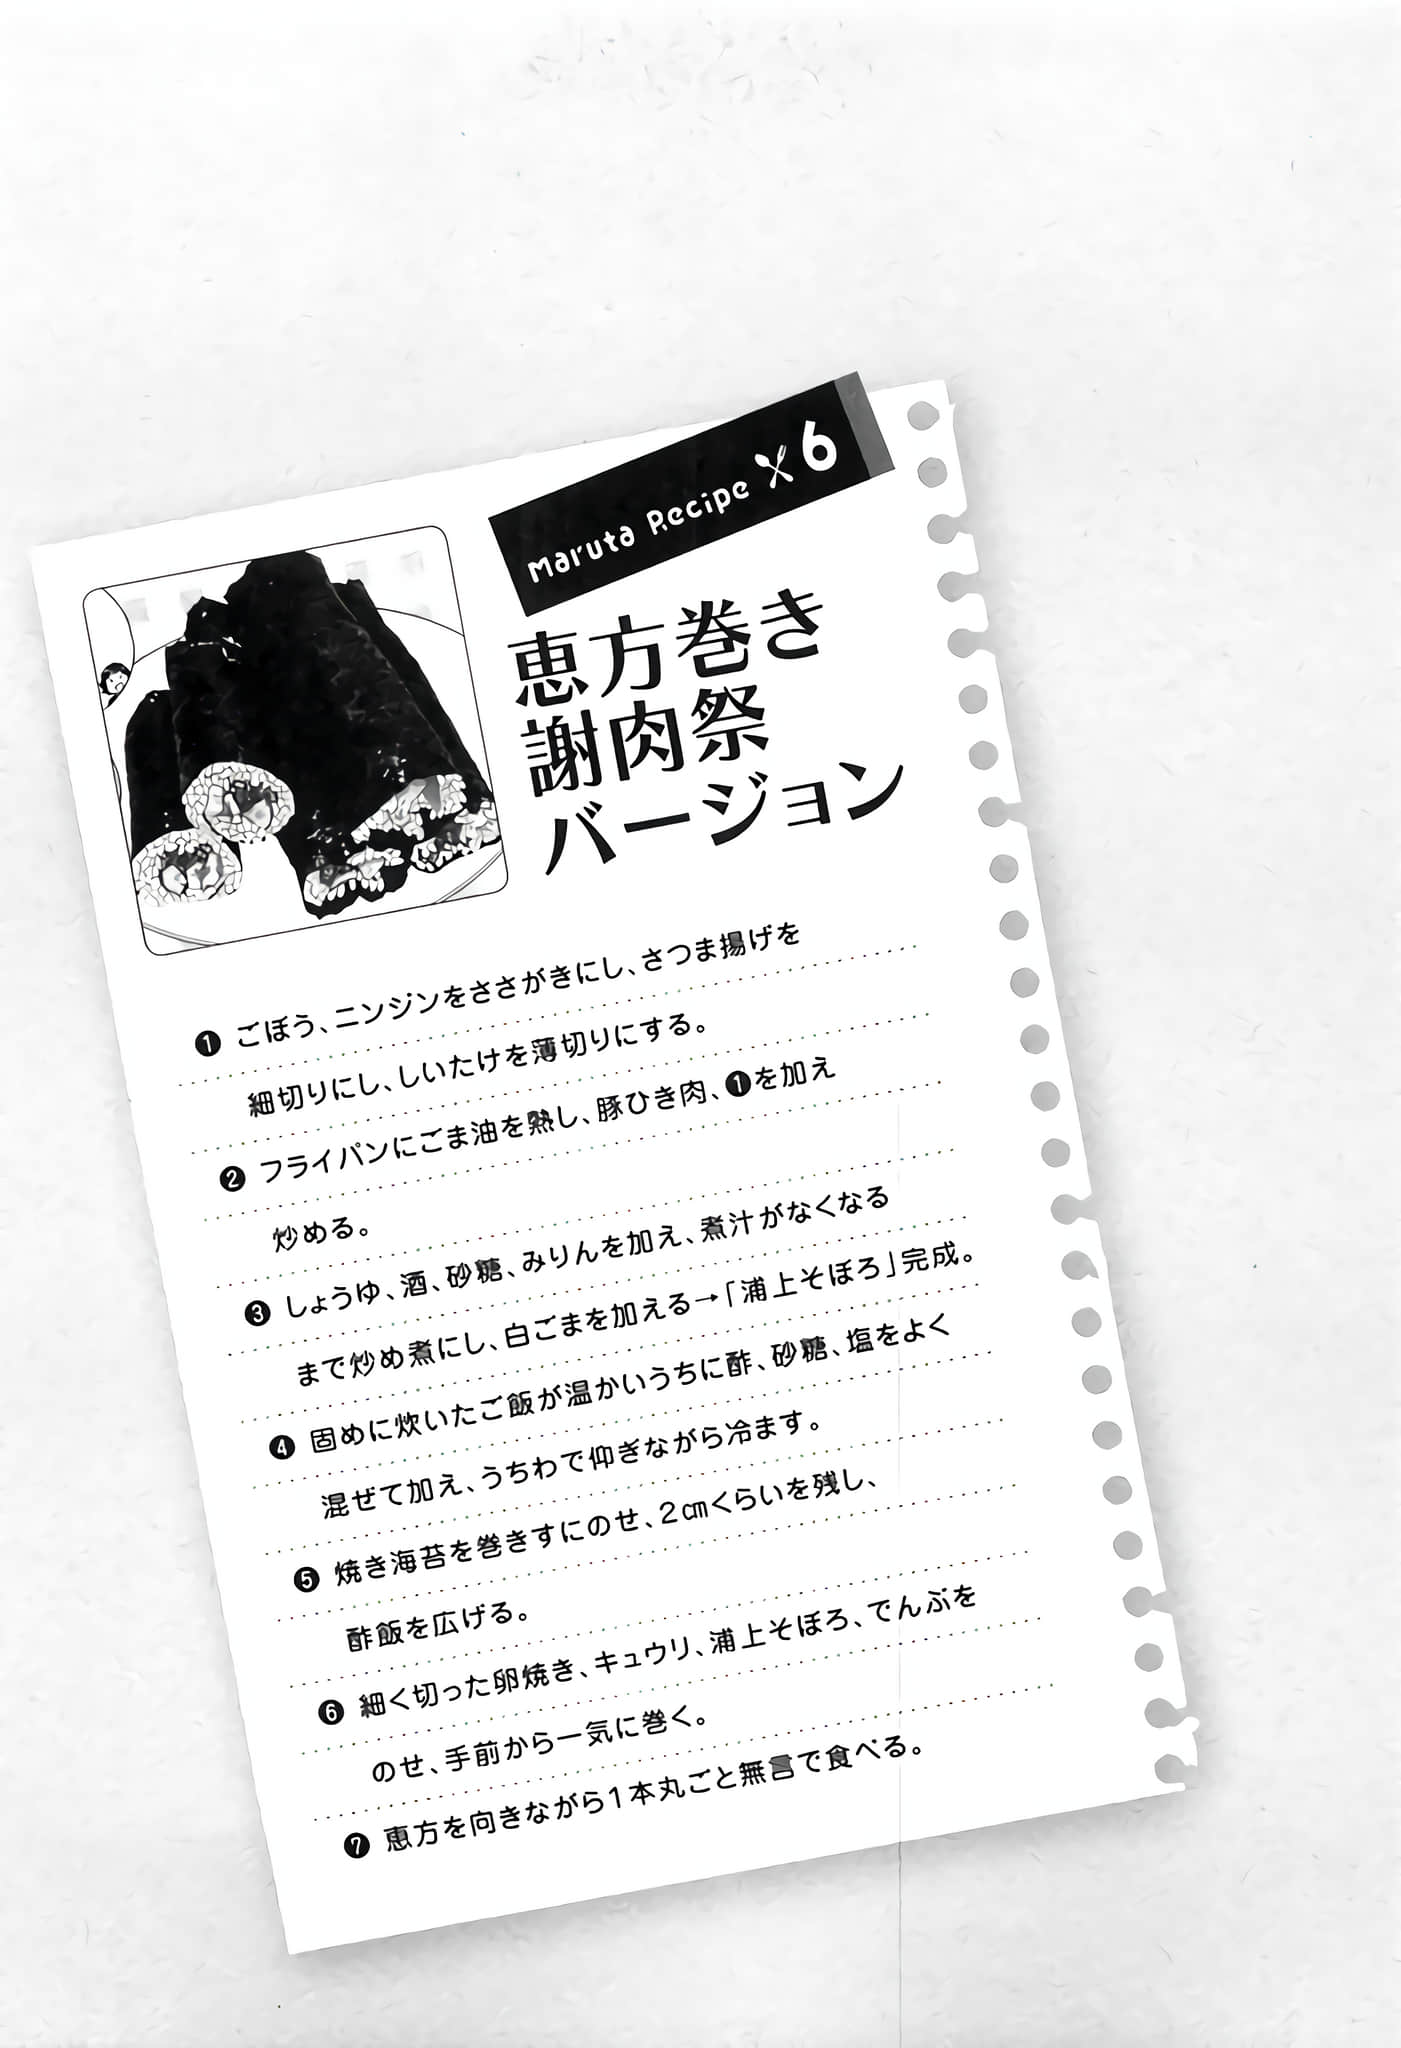 Maruta Recipe 6
恵方巻き
謝肉祭
バージョン
❶ ごぼう、ニンジンをささがきにし、さつま揚げを
細切りにし、しいたけを薄切りにする。
❷ フライパンにごま油を熱し、豚ひき肉、❶を加え
炒める。
❸ しょうゆ、酒、砂糖、みりんを加え、煮汁がなくなる
まで炒め煮にし、白ごまを加える→「浦上そぼろ」完成。
❹ 固めに炊いたご飯が温かいうちに酢、砂糖、塩をよく
混ぜて加え、うちわで仰ぎながら冷ます。
❺ 焼き海苔を巻きすにのせ、2㎝くらいを残し、
酢飯を広げる。
❻ 細く切った卵焼き、キュウリ、浦上そぼろ、でんぶを
のせ、手前から一気に巻く。
❼ 恵方を向きながら1本丸ごと無言で食べる。